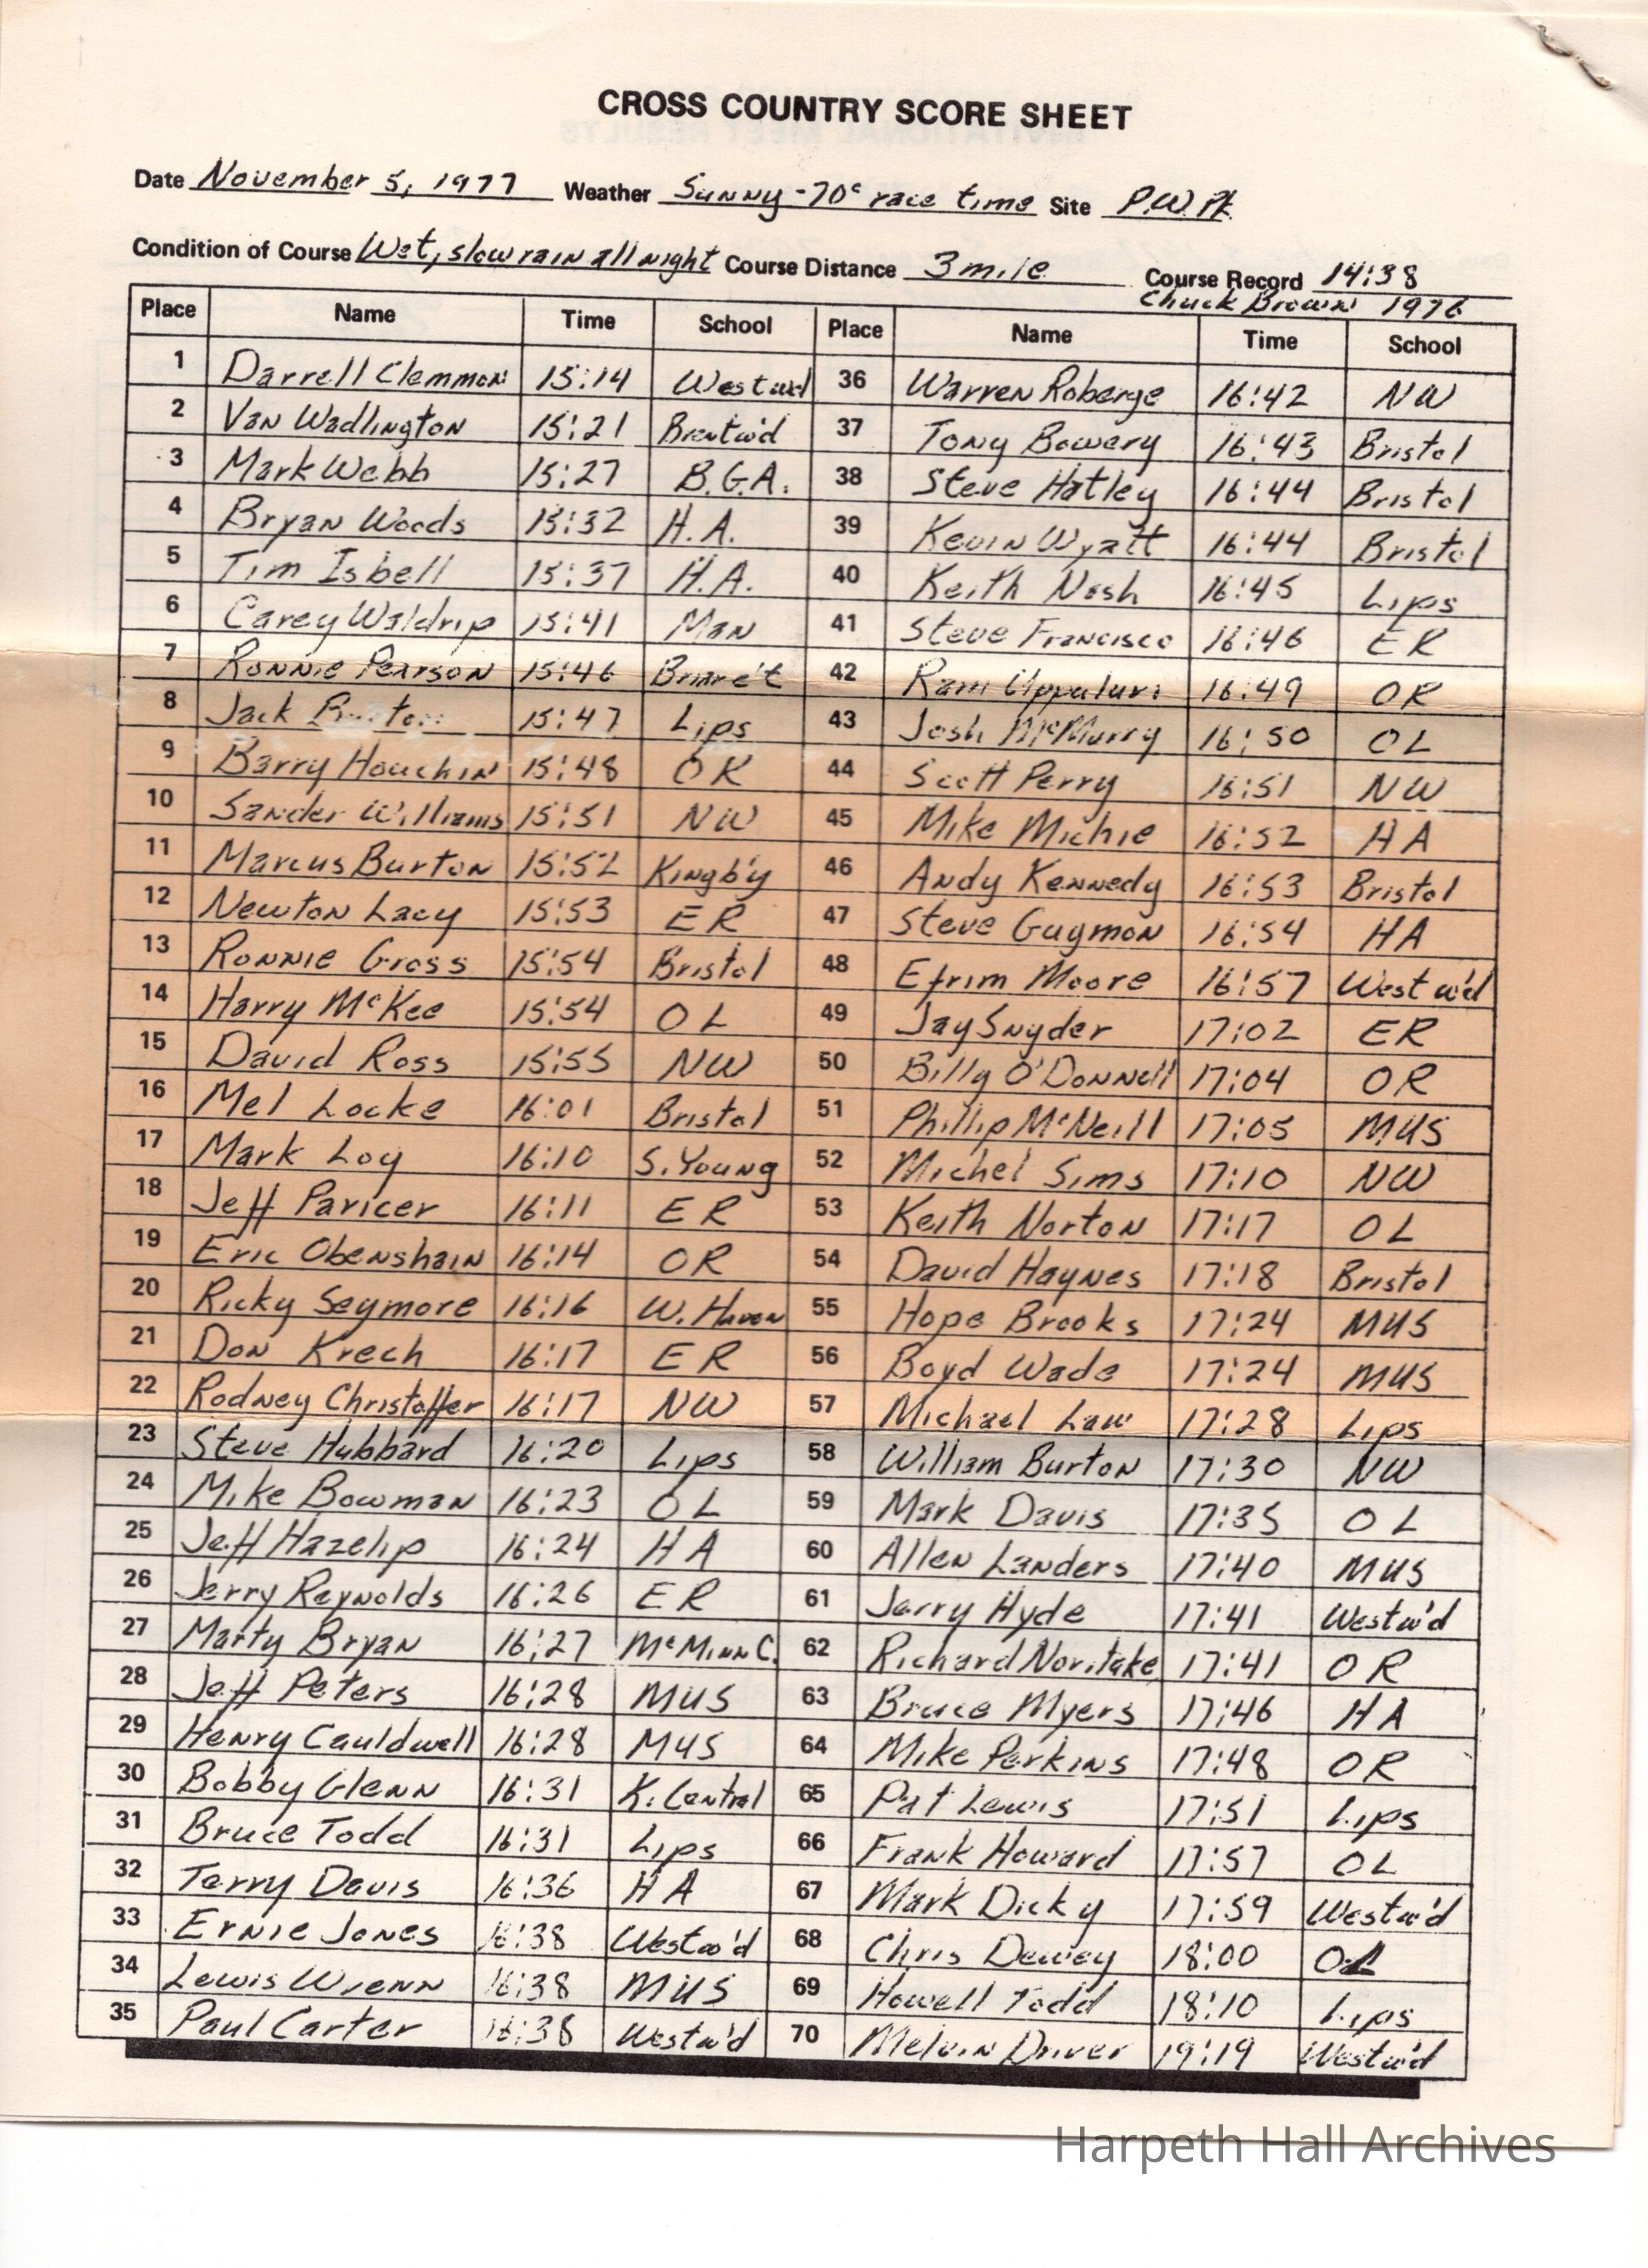 CROSS COUNTRY SCORE SHEET
Date November 5, 1977 Weather Sunny-70° race time Site P.W. Pk.
Condition of Course Wet, slow rain all night Course Distance 3 mile Course Record 14:38
Chuck Brown 1976
Place Name Time School Place Name Time School
1 Darrell Clemmon 15:14 Westwd 36 Warren Roberge 16:42 NW
2 Van Wadlington 15:21 Brentw'd 37 Tony Bowery 16:43 Bristol
3 Mark Webb 15:27 B.G.A. 38 Steve Hatley 16:44 Bristol
4 Bryan Woods 15:32 H.A. 39 Kevin Wyatt 16:44 Bristol
5 Tim Isbell 15:37 H.A. 40 Keith Nash 16:45 Lips
6 Carey Waldrip 15:41 Man 41 Steve Francisco 16:46 ER
7 Ronnie Pearson 15:46 Briarc't 42 Ram Uppuluri 16:49 OR
8 Jack 15:47 Lips 43 Josh McMurry 16:50 OL
9 Barry Houchin 15:48 OR 44 Scott Perry 16:51 NW
10 Sander Williams 15:51 NW 45 Mike Michie 16:52 HA
11 Marcus Burton 15:52 Kingb'y 46 Andy Kennedy 16:53 Bristol
12 Newton Lacy 15:53 ER 47 Steve Guymon 16:54 HA
13 Ronnie Gross 15:54 Bristol 48 Efrim Moore 16:57 Westw'd
14 Harry McKee 15:54 OL 49 Jay Snyder 17:02 ER
15 David Ross 15:55 NW 50 Billy O'Donnell 17:04 OR
16 Mel Locke 16:01 Bristol 51 Phillip McNeill 17:05 MUS
17 Mark Loy 16:10 S. Young 52 Michel Sims 17:10 NW
18 Jeff Paricer 16:11 ER 53 Keith Norton 17:17 OL
19 Eric Obenshain 16:14 OR 54 David Haynes 17:18 Bristol
20 Ricky Seymore 16:16 W. Haven 55 Hope Brooks 17:24 MUS
21 Don Krech 16:17 ER 56 Boyd Wade 17:24 MUS
22 Rodney Christoffer 16:17 NW 57 Michael Law 17:28 Lips
23 Steve Hubbard 16:20 Lips 58 William Burton 17:30 NW
24 Mike Bowman 16:23 OL 59 Mark Davis 17:35 OL
25 Jeff Hazelip 16:24 HA 60 Allen Landers 17:40 MUS
26 Jerry Reynolds 16:26 ER 61 Jerry Hyde 17:41 Westw'd
27 Marty Bryan 16:27 McMinn C. 62 Richard Noritake 17:41 OR
28 Jeff Peters 16:28 MUS 63 Bruce Myers 17:46 HA
29 Henry Cauldwell 16:28 MUS 64 Mike Perkins 17:48 OR
30 Bobby Glenn 16:31 K. Central 65 Pat Lewis 17:51 Lips
31 Bruce Todd 16:31 Lips 66 Frank Howard 17:57 OL
32 Terry Davis 16:36 HA 67 Mark Dicky 17:59 Westw'd
33 Ernie Jones 16:38 Westw'd 68 Chris Dewey 18:00 OL
34 Lewis Wrenn 16:38 MUS 69 Howell Todd 18:10 Lips
35 Paul Carter 16:38 Westw'd 70 Melvin Driver 19:19 Westw'd
Harpeth Hall Archives